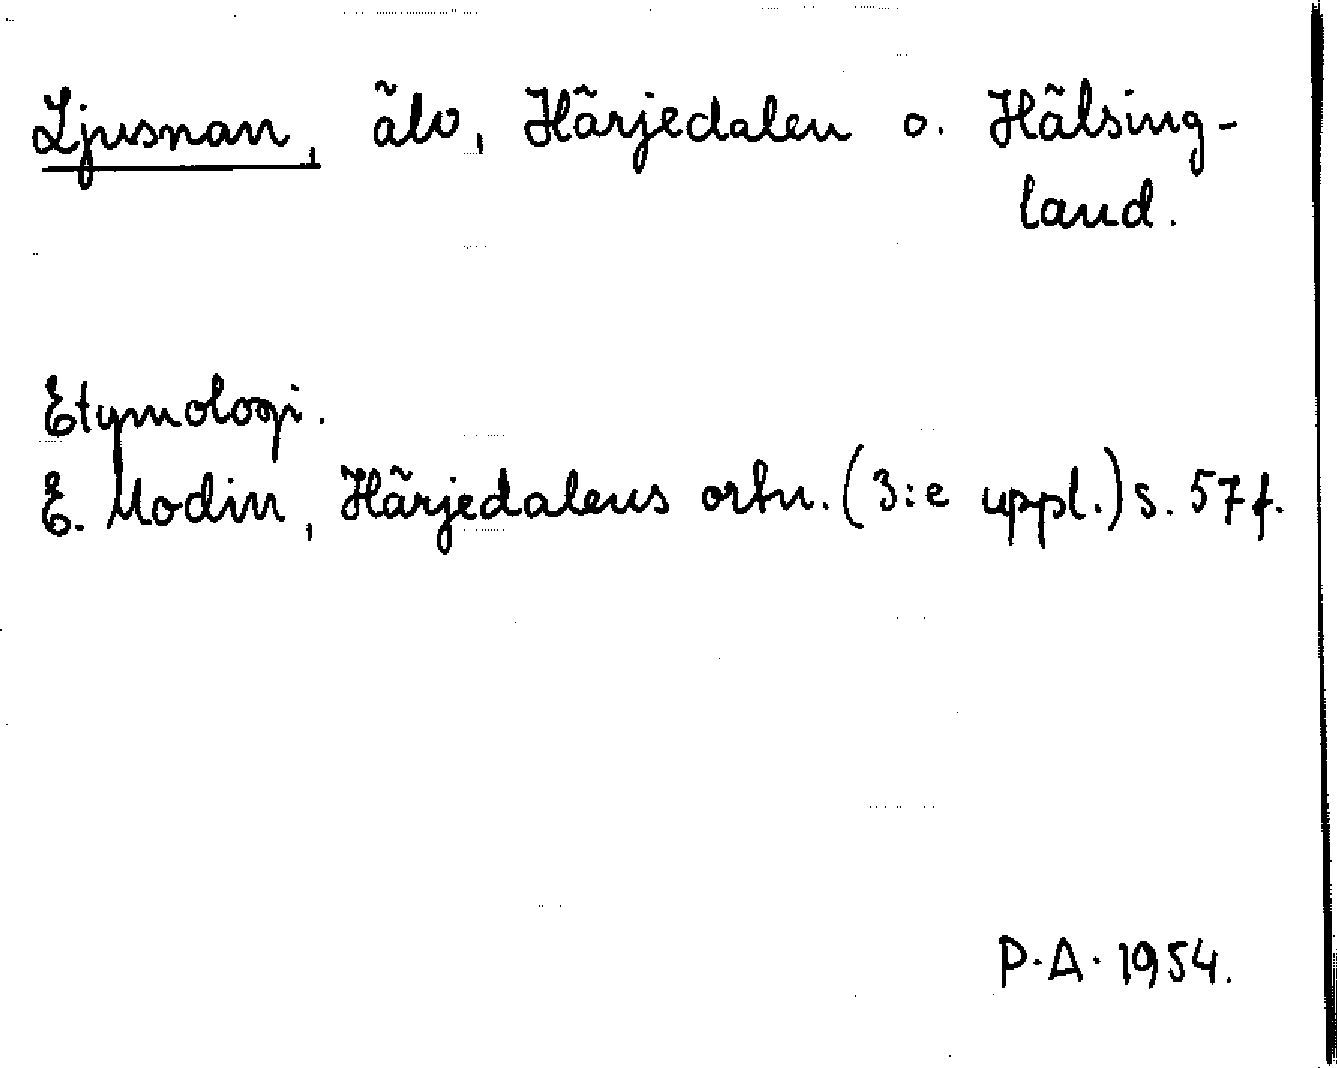 Ljusnan, älv, Härjedalen o. Hälsing-
land.
Etymologi.
E. Modin, Härjedalens ortn. (3:e uppl.) s. 57 f.
P.A. 1954.